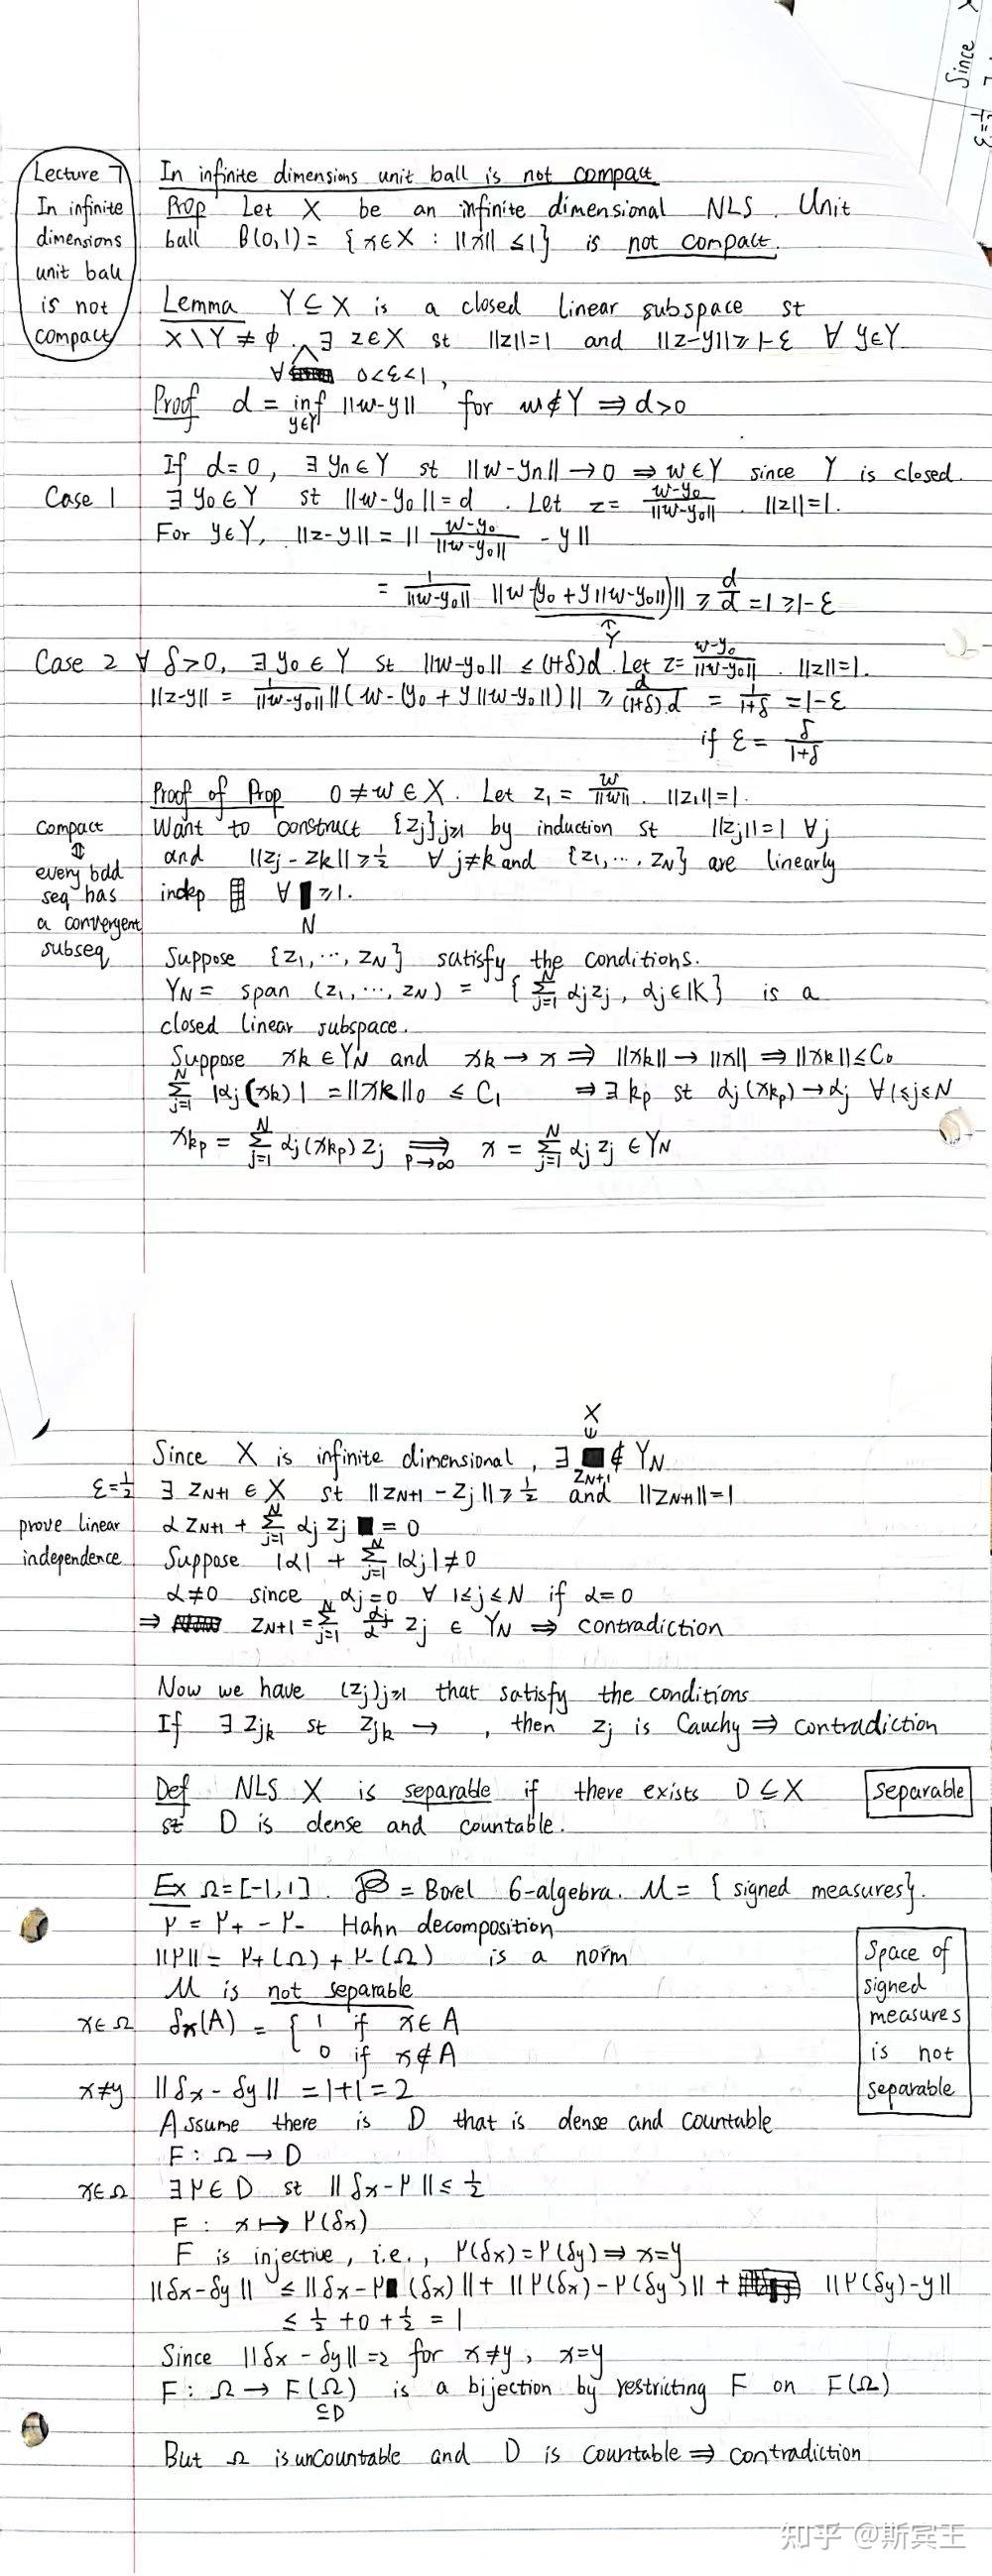 Since
ε=½
Lecture 7
In infinite
dimensions
unit ball
is not
compact
In infinite dimensions unit ball is not compact
Prop Let X be an infinite dimensional NLS. Unit
ball B(0,1) = {x∈X : ||x|| ≤1} is not compact.
Lemma Y⊆X is a closed linear subspace st
X\Y ≠ ϕ. ∃ z∈X st ||z||=1 and ||z-y||≥1-ε ∀ y∈Y
∀ 0<ε<1,
Proof d = inf_{y∈Y} ||w-y|| for w∉Y ⇒ d>0
If d=0, ∃ yn∈Y st ||w-yn||→0 ⇒ w∈Y since Y is closed.
Case 1 ∃ y₀∈Y st ||w-y₀||=d. Let z= (w-y₀)/||w-y₀||. ||z||=1.
For y∈Y, ||z-y|| = || (w-y₀)/||w-y₀|| - y ||
= 1/||w-y₀|| ||w-(y₀+y||w-y₀||)|| ≥ d/d =1≥1-ε
↑
Y
Case 2 ∀ δ>0, ∃ y₀∈Y st ||w-y₀|| ≤ (1+δ)d. Let z= (w-y₀)/||w-y₀||. ||z||=1.
||z-y|| = 1/||w-y₀|| ||(w-(y₀+y||w-y₀||)|| ≥ d/((1+δ)d) = 1/(1+δ) =1-ε
if ε= δ/(1+δ)
Proof of Prop 0≠w∈X. Let z₁= w/||w||. ||z₁||=1.
Want to construct {zj}j≥1 by induction st ||zj||=1 ∀j
and ||zj-zk||≥½ ∀ j≠k and {z₁,⋯,zN} are linearly
indep ∀ N ≥1.
compact
⇕
every bdd
seq has
a convergent
subseq
Suppose {z₁,⋯,zN} satisfy the conditions.
YN= span (z₁,⋯,zN) = {∑_{j=1}^N αjzj, αj∈K} is a
closed linear subspace.
Suppose xk∈YN and xk→x ⇒ ||xk||→||x|| ⇒ ||xk||≤C₀
∑_{j=1}^N |αj(xk)| = ||xk||₀ ≤ C₁ ⇒ ∃ kp st αj(xkp)→αj ∀ 1≤j≤N
xkp = ∑_{j=1}^N αj(xkp) zj ⟹_{p→∞} x = ∑_{j=1}^N αj zj ∈YN
X
Ψ
Since X is infinite dimensional, ∃ zN+1 ∉ YN
ε=½ ∃ zN+1 ∈ X st ||zN+1 - zj||≥½ and ||zN+1||=1
prove linear
independence
αzN+1 + ∑_{j=1}^N αj zj = 0
Suppose |α| + ∑_{j=1}^N |αj| ≠0
α≠0 since αj=0 ∀ 1≤j≤N if α=0
⇒ zN+1 = ∑_{j=1}^N αj/α zj ∈ YN ⇒ contradiction
Now we have (zj)j≥1 that satisfy the conditions
If ∃ zjk st zjk → , then zj is Cauchy ⇒ contradiction
Def NLS X is separable if there exists D⊆X
st D is dense and countable.
separable
Ex Ω=[-1,1]. ℬ = Borel 6-algebra. M= { signed measures}.
μ = μ+ - μ- Hahn decomposition
||μ|| = μ+(Ω)+μ-(Ω) is a norm
M is not separable
Space of
signed
measures
is not
separable
x∈Ω δx(A) = { 1 if x∈A
0 if x∉A
x≠y ||δx-δy|| = 1+1=2
Assume there is D that is dense and countable
F: Ω→D
x∈Ω ∃ μ∈D st ||δx-μ|| ≤ ½
F: x↦ μ(δx)
F is injective, i.e., μ(δx)=μ(δy) ⇒ x=y
||δx-δy|| ≤ ||δx-μ(δx)|| + ||μ(δx)-μ(δy)|| + ||μ(δy)-y||
≤ ½+0+½ = 1
Since ||δx-δy||=2 for x≠y, x=y
F: Ω→F(Ω) is a bijection by restricting F on F(Ω)
⊆D
But Ω is uncountable and D is countable ⇒ contradiction
知乎 @斯宾王